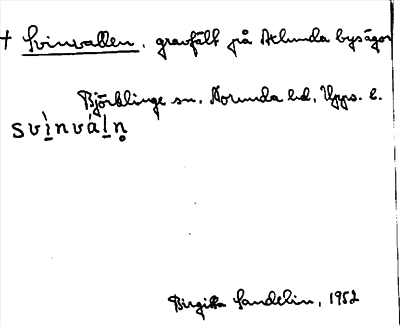 † Svinvallen, gravfält på Åkunda bysägor
Björklinge sn. Norunda hd, Upps. l.
svì̠nvál̠n̥
Birgitta Sandelin, 1952